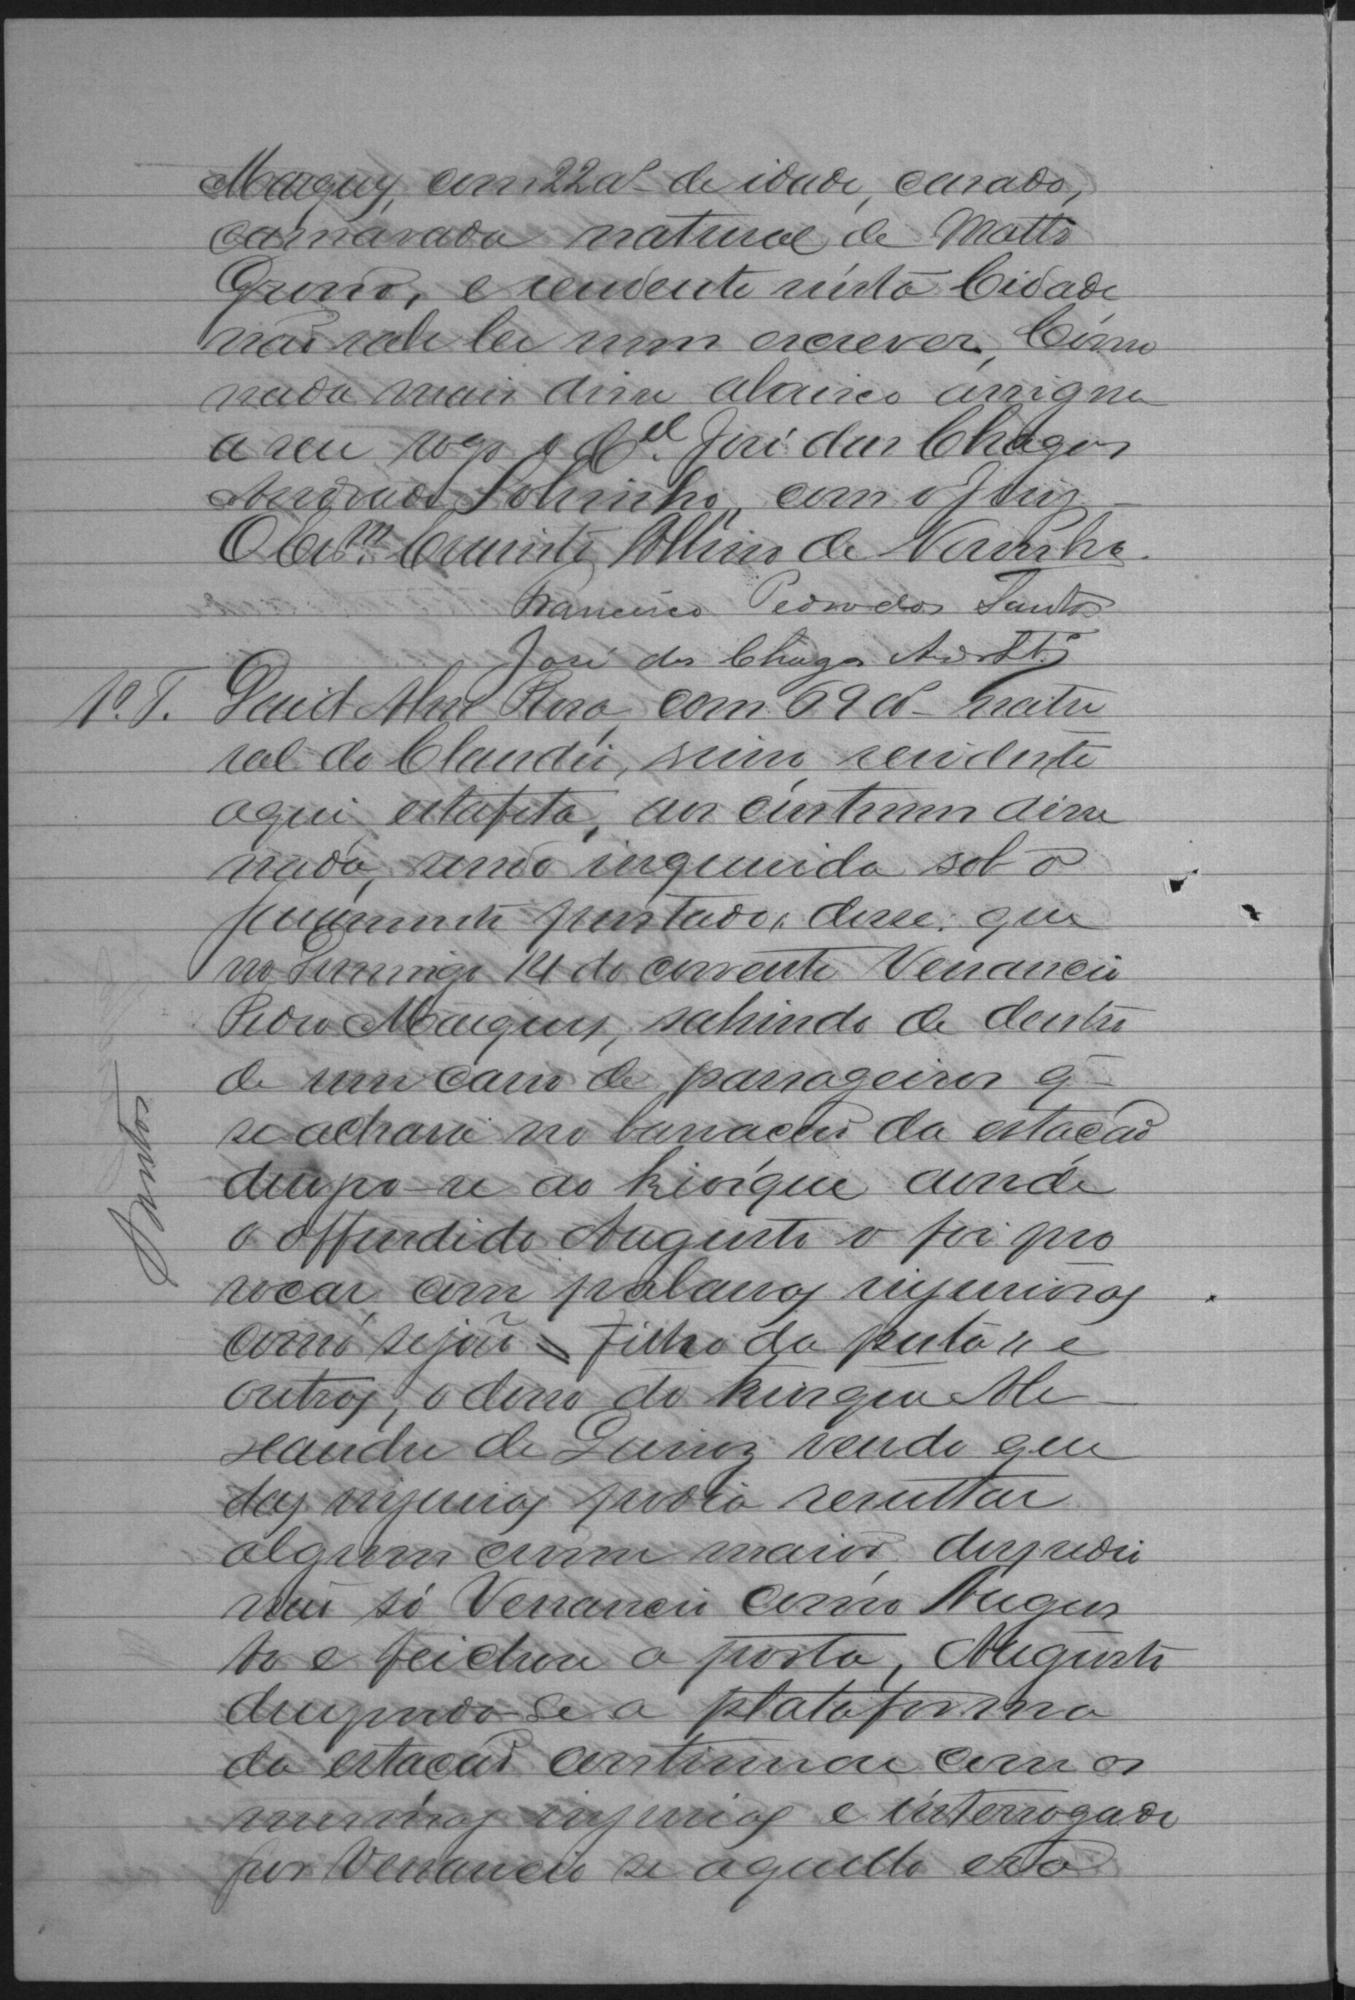 Marques, com 22 as de idade, casado,
camarada natural de Matto
Grosso, e residente nesta Cidade
não sabe ler nem escrever. Como
nada mais disse abaixo assigna
a seu rogo o Cel. José das Chagas
Andrade Sobrinho, com o Juiz
O Escm. Albino de Noronha.
Francisco Pedro dos Santos
José das Chagas Andre Sobro
1ª. T. David Alves Rosa, com 69 as natu
ral do Claudio, residente
aqui, estafeta, aos costumes disse
nada, sendo inquerida sob o
juramento prestado, disse: que
no Domingo 14 do corrente Venancio
Pedro Marques, sahindo de dentro
de um carro de passageiros q
se achava no barracão da estação
dirigio-se ao kiosque aonde
o offendido Augusto o foi pro
vocar com palavras injuriosas
como sejão = Filho da puta = e
outras, o dono do kiosque Ale
xandre de Queiroz vendo que
das injurias podia resultar
algum crime maior, despedio
não só Venancio como Augus
to e feichou a porta, Augusto
dirigindo-se a plataforma
da estação continuou com as
mesmas injurias e interrogado
por Venancio se aquello era
Santos